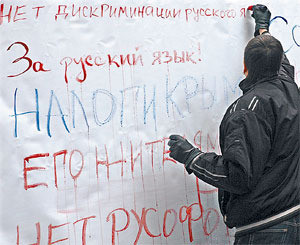 НЕТ ДИСКРИМИНАЦИИ РУССКОГО Я
За русский язык!
НАЛОГИ КРЫМ
ЕГО ЖИТЕЛЯМ
НЕТ РУСОФО